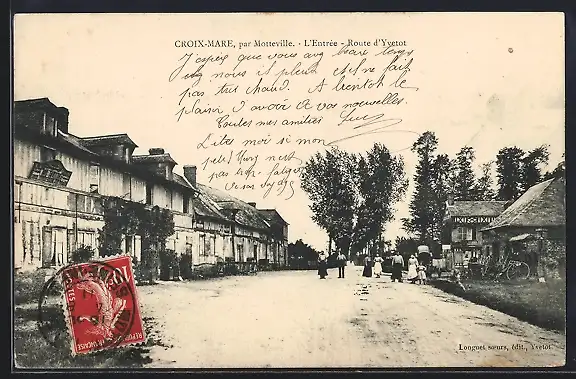 CROIX-MARE, par Motteville. - L'Entrée - Route d'Yvetot
J'espère que vous avez beau temps
chez nous il pleut et il ne fait
pas très chaud. A bientôt le
plaisir d'avoir de vos nouvelles.
Toutes mes amitiés
Dites moi si mon
petit n'est
pas trop fatigué
du voyage
REPUBLIQUE FRANÇAISE
POSTES
Longuet sœurs, édit., Yvetot